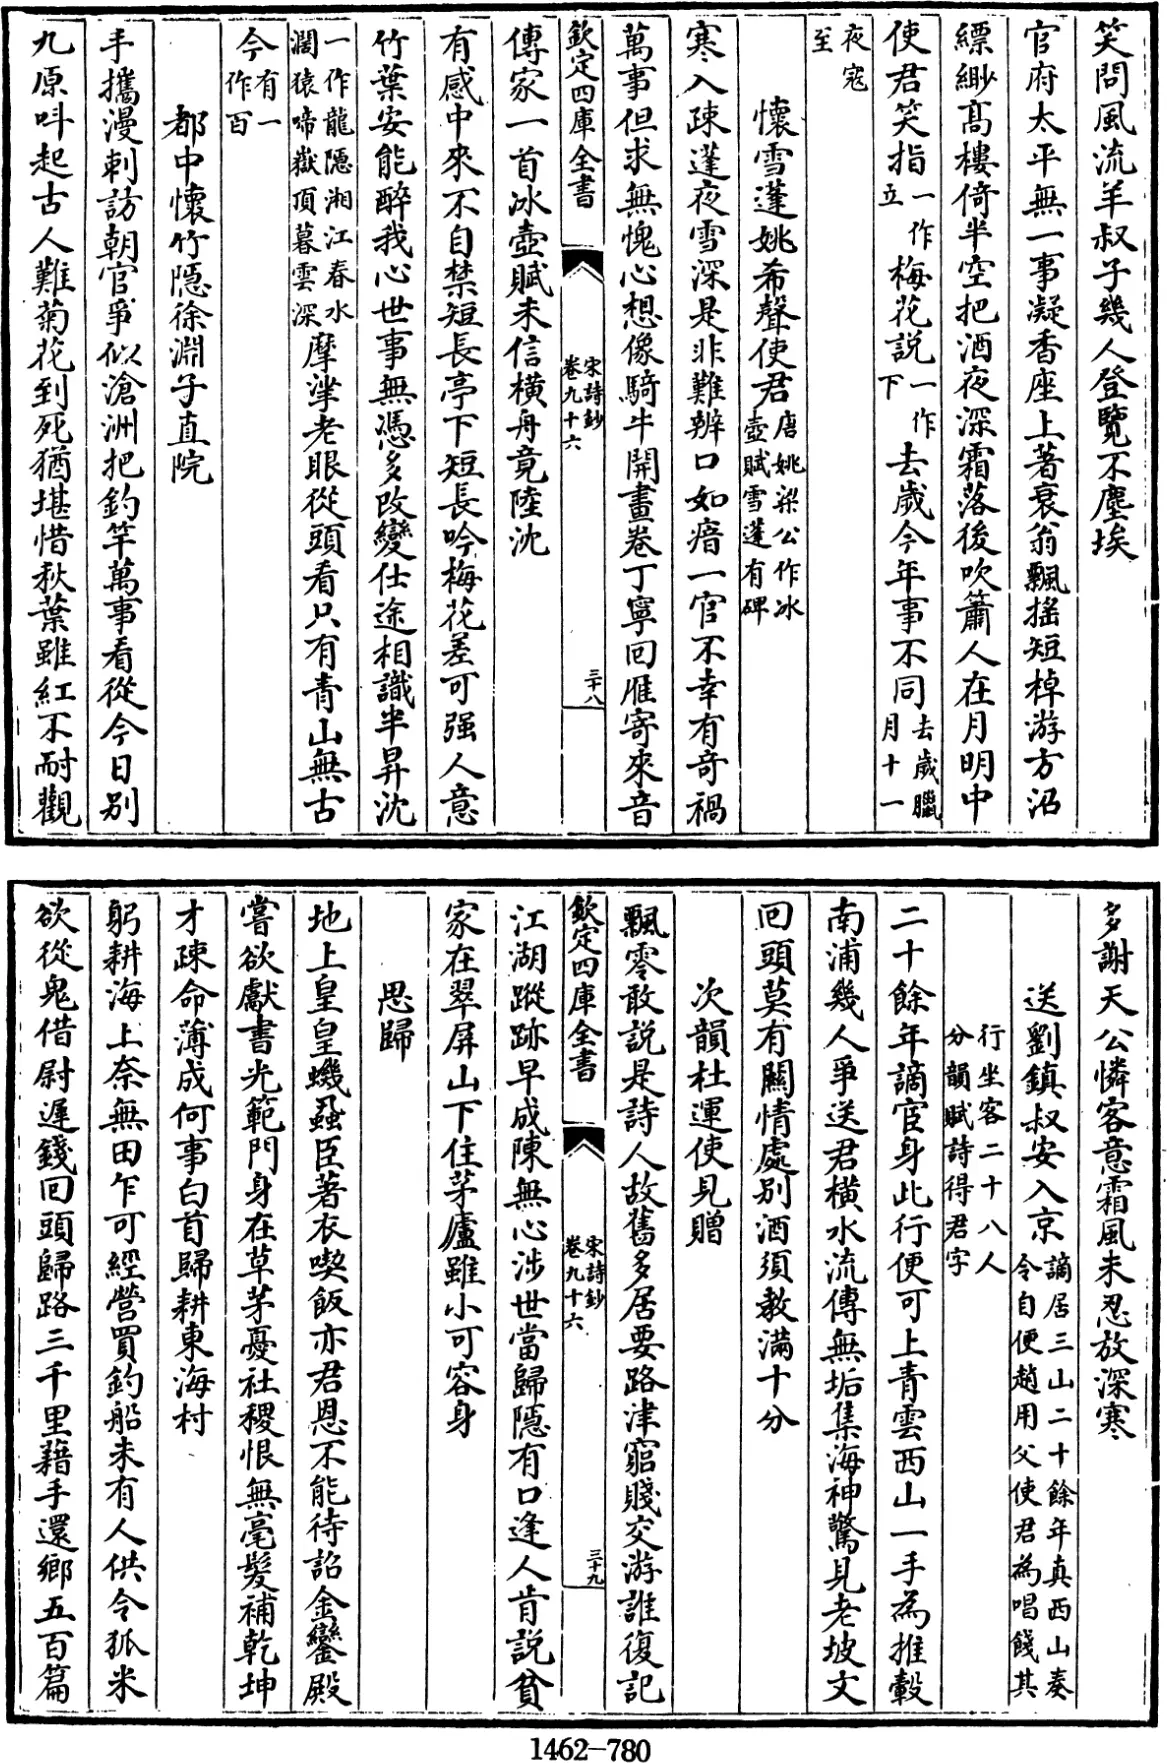 笑問風流羊叔子幾人登覽不塵埃
官府太平無一事凝香座上著衰翁飄搖短棹游方沼
縹緲髙樓倚半空把酒夜深霜落後吹簫人在月明中
使君笑指一作立梅花説一作下去歲今年事不同去歲臘月十一
夜宼至
懷雪蓬姚希聲使君唐姚梁公作冰壺賦雪蓬有碑
寒入疎蓬夜雪深是非難辨口如瘖一官不幸有奇禍
萬事但求無愧心想像騎牛開畫卷丁寧回雁寄來音
欽定四庫全書
宋詩鈔
卷九十六
三十八
傳家一首冰壺賦未信橫舟竟陸沈
有感中來不自禁短長亭下短長吟梅花差可强人意
竹葉安能醉我心世事無憑多改變仕途相識半昇沈
一作龍隠湘江春水濶猿啼嶽頂暮雲深摩挲老眼從頭看只有青山無古
今有一作百
都中懷竹隠徐淵子直院
手攜漫刺訪朝官爭似滄洲把釣竿萬事看從今日別
九原呌起古人難菊花到死猶堪惜秋葉雖紅不耐觀
多謝天公憐客意霜風未忍放深寒
送劉鎮叔安入京謫居三山二十餘年真西山奏令自便趙用父使君為唱餞其
行坐客二十八人分韻賦詩得君字
二十餘年謫宦身此行便可上青雲西山一手為推轂
南浦幾人爭送君橫水流傳無垢集海神驚見老坡文
回頭莫有關情處別酒須教滿十分
次韻杜運使見贈
飄零敢説是詩人故舊多居要路津窮賤交游誰復記
欽定四庫全書
宋詩鈔
卷九十六
三十九
江湖蹤跡早成陳無心涉世當歸隠有口逢人肯説貧
家在翠屏山下住茅廬雖小可容身
思歸
地上皇皇蟣蝨臣著衣喫飯亦君恩不能待詔金鑾殿
嘗欲獻書光範門身在草茅憂社稷恨無毫髪補乾坤
才疎命薄成何事白首歸耕東海村
躬耕海上奈無田乍可經營買釣船未有人供令狐米
欲從鬼借尉遲錢回頭歸路三千里藉手還鄉五百篇
1462-780